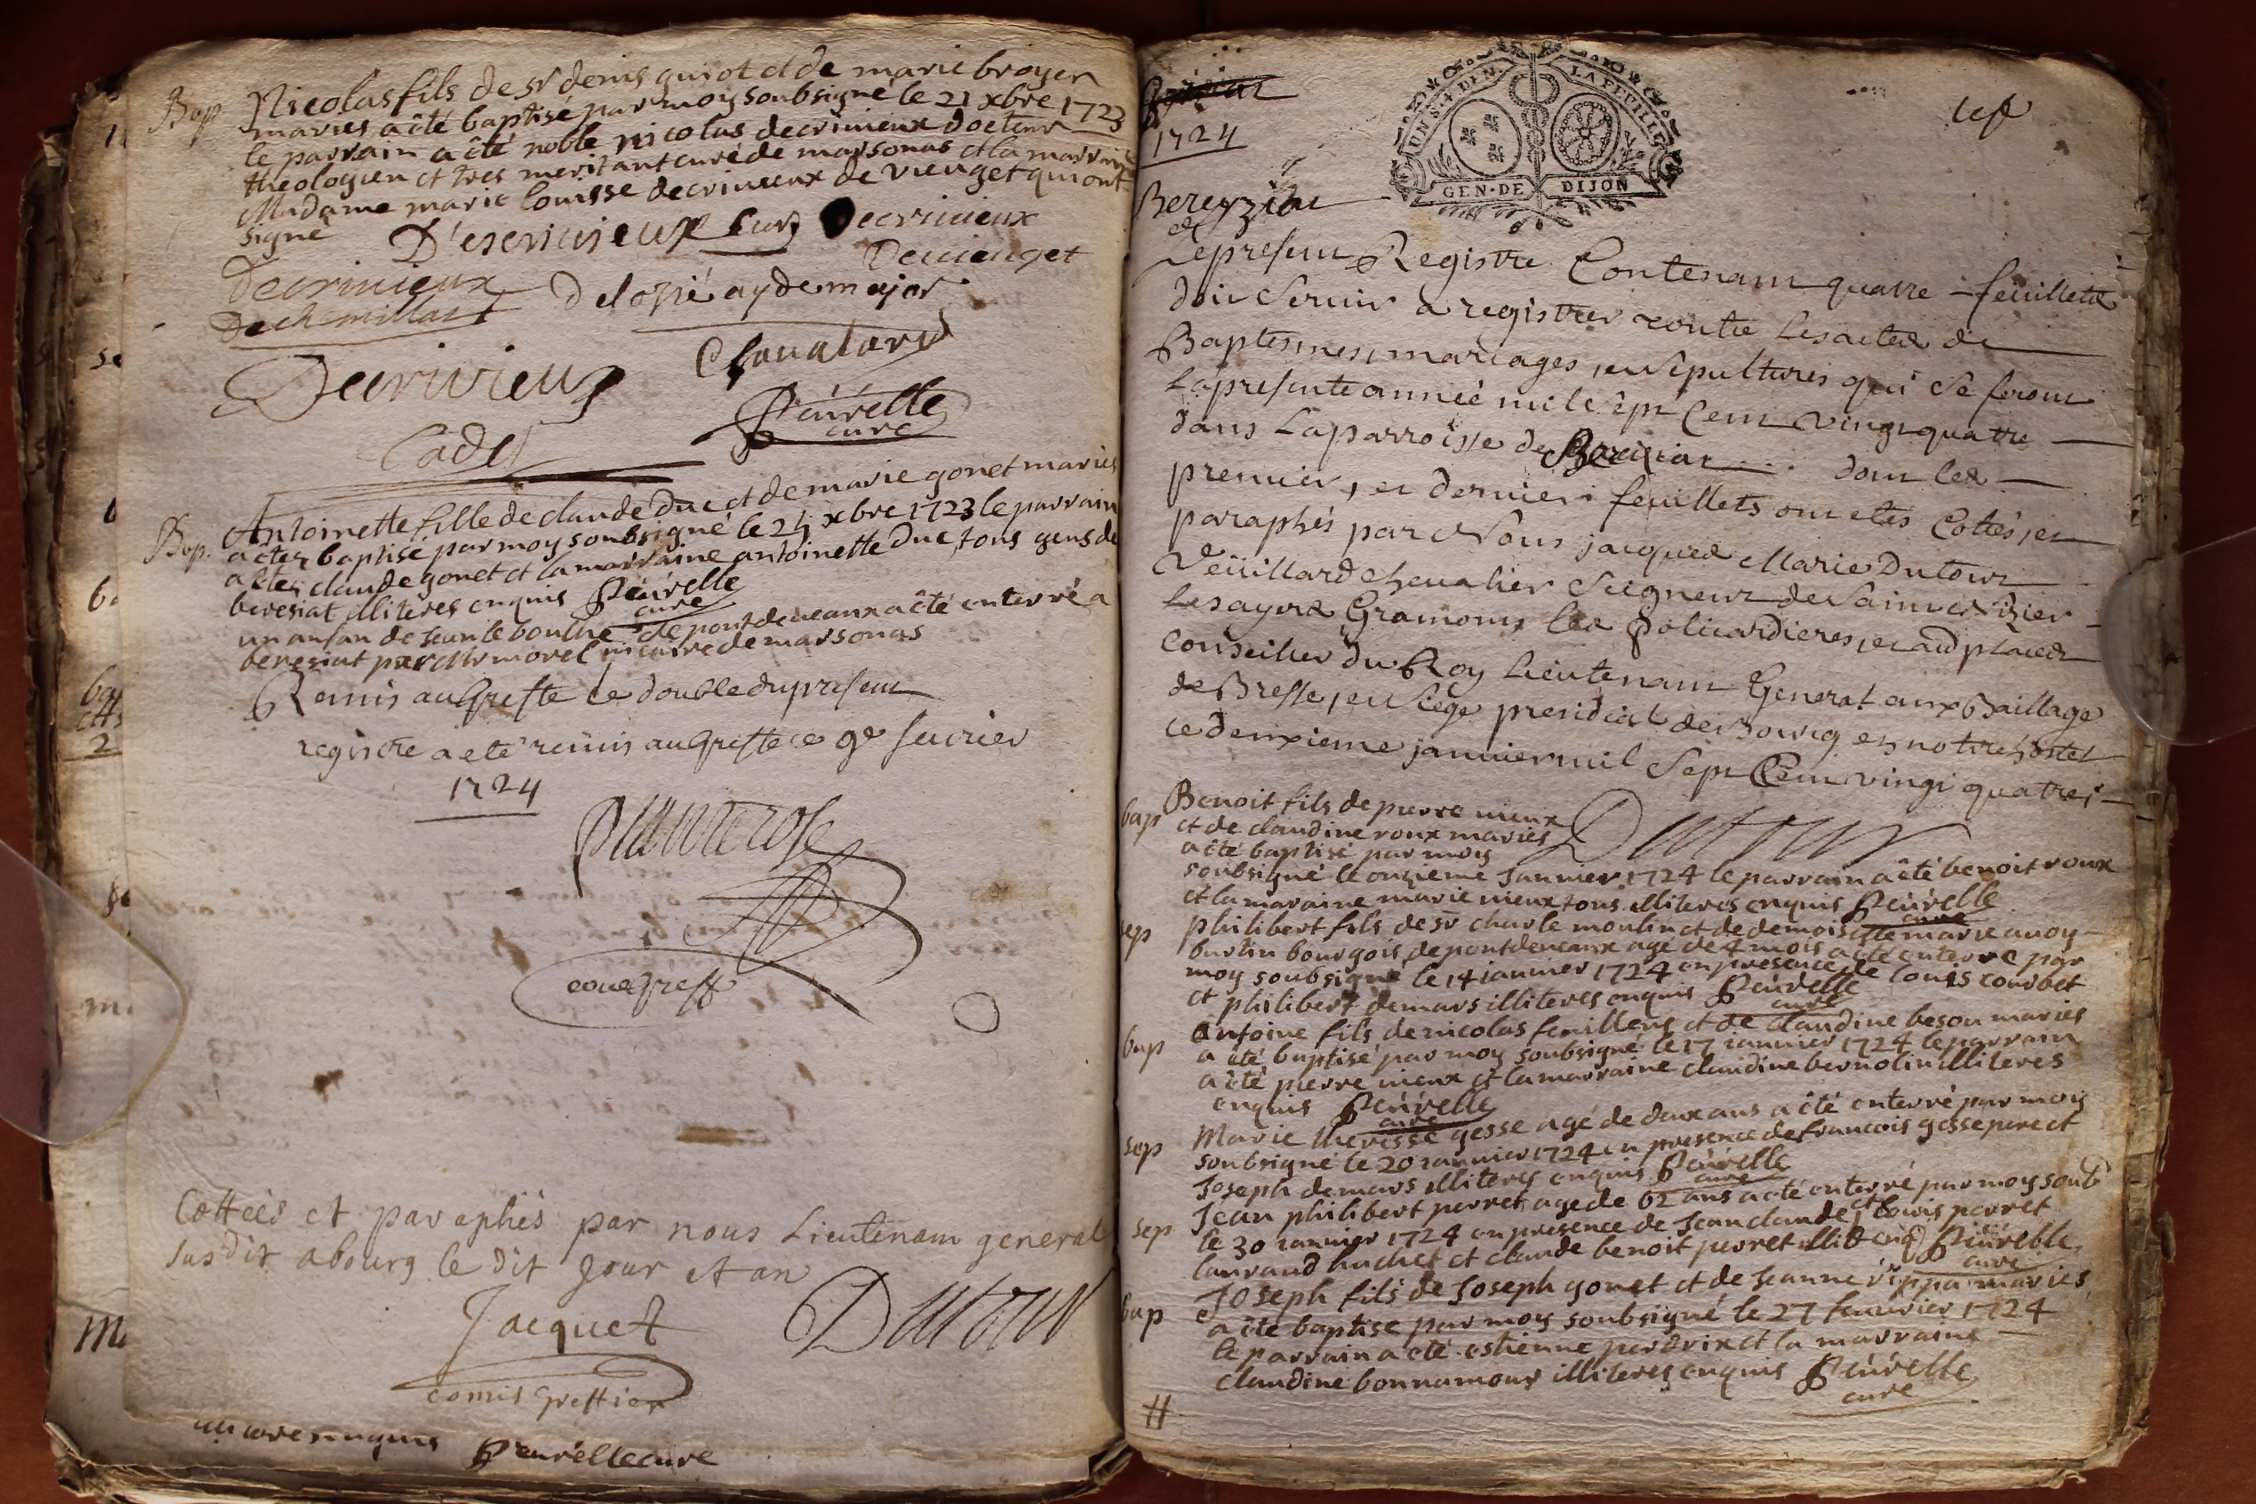 Bap Nicolas fils de sr denis guiot et de marie broyer
mariés a êté baptisé par moy soubsigné le 21 xbre 1723
le parrain a êté noble nicolas decrivieux docteur
theologien et tres meritant curé de marsonas et la marraine
Madame marie louisse decrivieux de vienget qui ont
signé
D'escrivieux curé Decrivieux
Devienget
Decrivieux
Dechemillat
Delozié aydemajor
Decrivieux
Chavalard
Peúvelle
curé
Cadet
Bap. Antoinette fille de claude Duc et de marie gonet mariés
a êter baptisé par moy soubsigné le 24 xbre 1723 le parrain
a êter claude gonet et la marraine antoinette Duc, tous gens de
beresiat illiteres enquis Peúvelle
curé
un anfan de Jean le bouthe de pontdeveaux a êté enterré a
beresiat par Mr morel vicaire de marsonas
Remis au Greffe le double du present
registre a eté remis au Greffe ce 9e fevrier
1724
Planterose
comis Greff
Cottéés et paraphés par nous Lieutenant general
susdit a bourg le dit jour et an
Jacquet
Dutour
comis greffier
enquis Peúvelle curé
1724
UN S. 4 DEN. LA FEUILLE
GEN · DE DIJON
Bereyziat
Le present Registre Contenant quatre feüillets
doit servir a registrer toutte les actes de
Baptesmes, mariages, et sepultures qui se feront
la presente année mil sept Cent vingt quatre
dans la parroisse de Bereiziat dont les
premier, et dernier feuillets ont etés Cottés, et
paraphés par Nous jacques Marie Dutour
Veüillard chevalier Seigneur de Saint Nizier
conseiller du Roy Lieutenant General aux Baillage
de Bresse, et siége presidial de Bourg en notre hostel
ce deuxieme janvier mil sept Cent vingt quatre
Dutour
bap Benoit fils de pierre nieux
et de claudine roux mariés
a êté baptisé par moy
soubsigné le onzieme Janvier 1724 le parrain a êté benoit roux
et la maraine marie nieux tous illiteres enquis Peúvelle
curé
sep philibert fils de sr charle moulin et de demoiselle marie avoy
burtin bourgois de pontdeveaux agé de 4 mois a êté enterré par
moy soubsigné le 14 ianvier 1724 en presence de louis courbet
et philibert demars illiteres enquis Peúvelle
curé
bap Antoine fils de nicolas feuillens et de claudine beson mariés
a êté baptisé par moy soubsigné le 17 ianvier 1724 le parrain
a êté pierre nieux et la marraine claudine bernolin illiteres
enquis Peúvelle
curé
sep Marie theresse gesse agé de deux ans a êté enterré par moy
soubsigné le 20 ianvier 1724 en presence de francois gesse pere et
Joseph demars illiteres enquis Peúvelle
curé
sep Jean philibert perret agé de 62 ans a êté enterré par moy soub
le 30 ianvier 1724 en presence de Jean claude et louis perret
laurand huchet et claude benoit perret illit enq Peúvelle
curé
bap Joseph fils de Joseph gonet et de Jeanne rippa mariés
a êté baptisé par moy soubsigné le 27 feuvrier 1724
le parrain a êté estienne perdrix et la marraine
claudine bonnamour illiteres enquis Peúvelle
curé